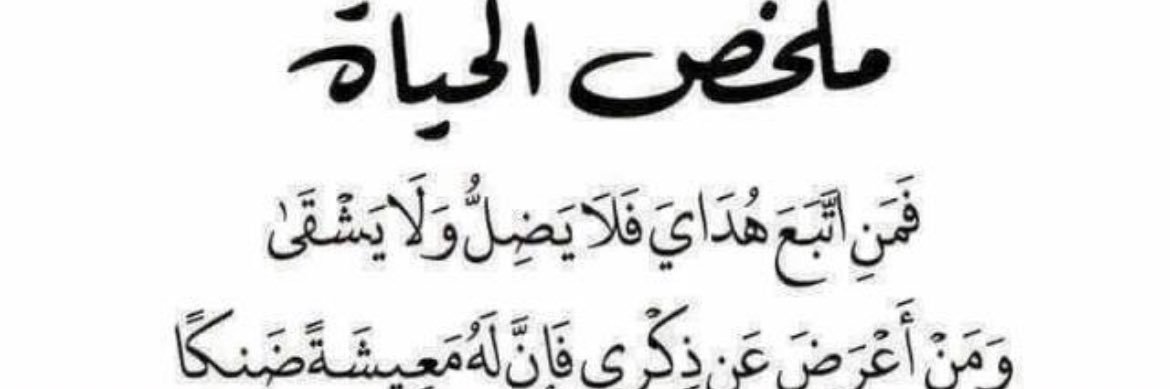 ملخص الحياة
فَمَنِ اتَّبَعَ هُدَايَ فَلَا يَضِلُّ وَلَا يَشْقَىٰ
وَمَنْ أَعْرَضَ عَن ذِكْرِي فَإِنَّ لَهُ مَعِيشَةً ضَنكًا